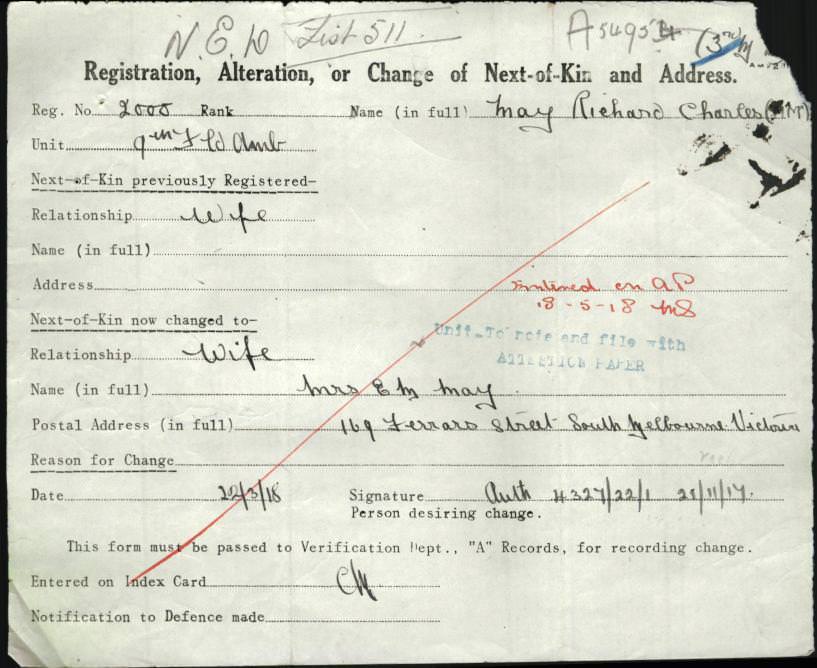 N.E.D List 511. A 54954 (3rd M
Registration, Alteration, or Change of Next-of-Kin and Address.
Reg. No. 2000 Rank Name (in full) May Richard Charles
Unit 9th Fld Amb
Next-of-Kin previously Registered-
Relationship Wife
Name (in full)
Address
Entered on AP
18-5-18 MS
Next-of-Kin now changed to-
Unit-To note and file with
ATTESTION PAPER
Relationship Wife
Name (in full) Mrs E M May.
Postal Address (in full) 169 Ferrars Street South Melbourne Victoria
Reason for Change
Date 22/3/18 Signature Auth 4327/22/1 21/11/17.
Person desiring change.
This form must be passed to Verification Dept., "A" Records, for recording change.
Entered on Index Card
Notification to Defence made